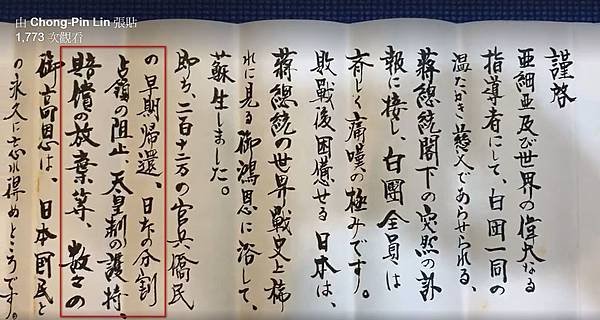 由 Chong-Pin Lin 張貼
1,773 次觀看
謹啓
亜細亜及び世界の偉大なる
指導者にして、白団一同の
温たかき慈父であらせられる、
蔣總統閣下の突然の訃
報に接し、白團全員は
斉しく痛嘆の極みです。
敗戰後困憊せる日本は、
蔣總統の世界戰史上稀
れに見る御鴻恩に浴して、
蘇生しました。
即ち、二百十二万の官兵僑民
の早期帰還、日本の分割
占領の阻止、天皇制の護持、
賠償の放棄等、数々の
御高恩は、日本国民と
の永久に忘れ得ぬところです。